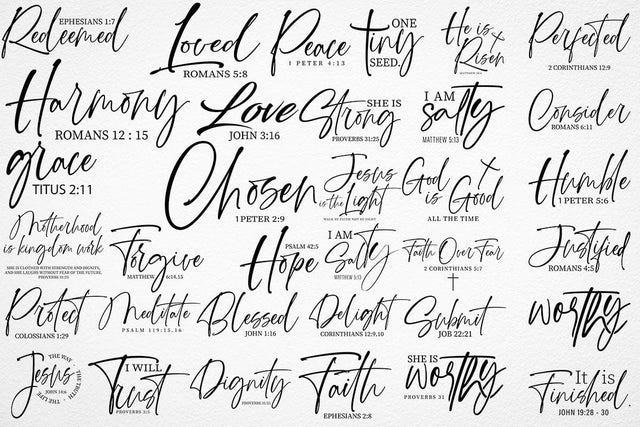 Redeemed
EPHESIANS 1:7
Loved
ROMANS 5:8
Peace
1 PETER 4:13
tiny
ONE
SEED.
He is
Risen
Perfected
2 CORINTHIANS 12:9
Harmony
ROMANS 12 : 15
Love
JOHN 3:16
SHE IS
Strong
PROVERBS 31:25
I AM
salty
MATTHEW 5:13
Consider
ROMANS 6:11
grace
TITUS 2:11
Chosen
1 PETER 2:9
Jesus
is the Light
WALK BY FAITH NOT BY SIGHT
God
is Good
ALL THE TIME
Humble
1 PETER 5:6
Motherhood
is kingdom work
SHE IS CLOTHED WITH STRENGTH AND DIGNITY,
AND SHE LAUGHS WITHOUT FEAR OF THE FUTURE.
PROVERBS 31:25
Forgive
MATTHEW 6:14,15
Hope
PSALM 42:5
I AM
Salty
MATTHEW 5:13
Faith Over Fear
2 CORINTHIANS 5:7
Justified
ROMANS 4:5
Protect
COLOSSIANS 1:29
Meditate
PSALM 119:15,16
Blessed
JOHN 1:16
Delight
CORINTHIANS 12:9,10
Submit
JOB 22:21
worthy
Jesus
THE WAY • THE TRUTH • THE LIFE •
JOHN 14:6
I WILL
Trust
PROVERBS 3:5
Dignity
Faith
EPHESIANS 2:8
SHE IS
worthy
PROVERBS 31
It is
Finished.
JOHN 19:28 - 30